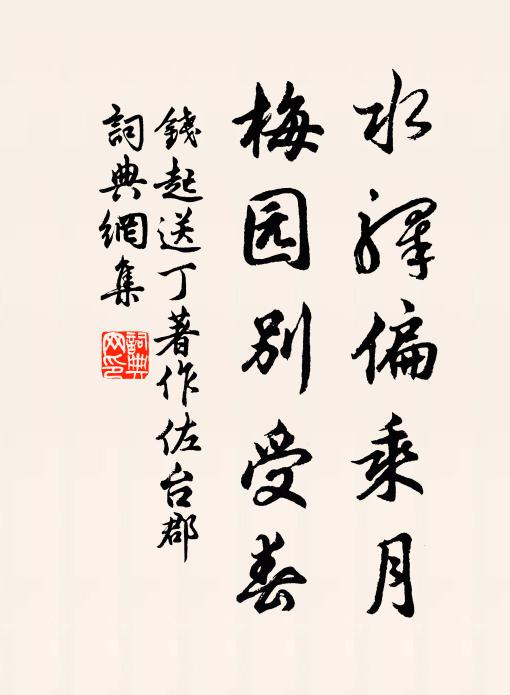 水驛偏乘月
梅园別受春
錢起送丁著作佐台郡
詞典網集
詞典网印